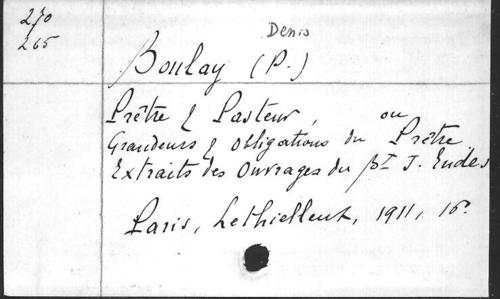 270
265
Denis
Boulay (P.)
Prêtre & Pasteur, ou
Grandeurs & Obligations du Prêtre
Extraits des Ouvrages du Bt J. Eudes
Paris, Lethielleux, 1911, 16°.